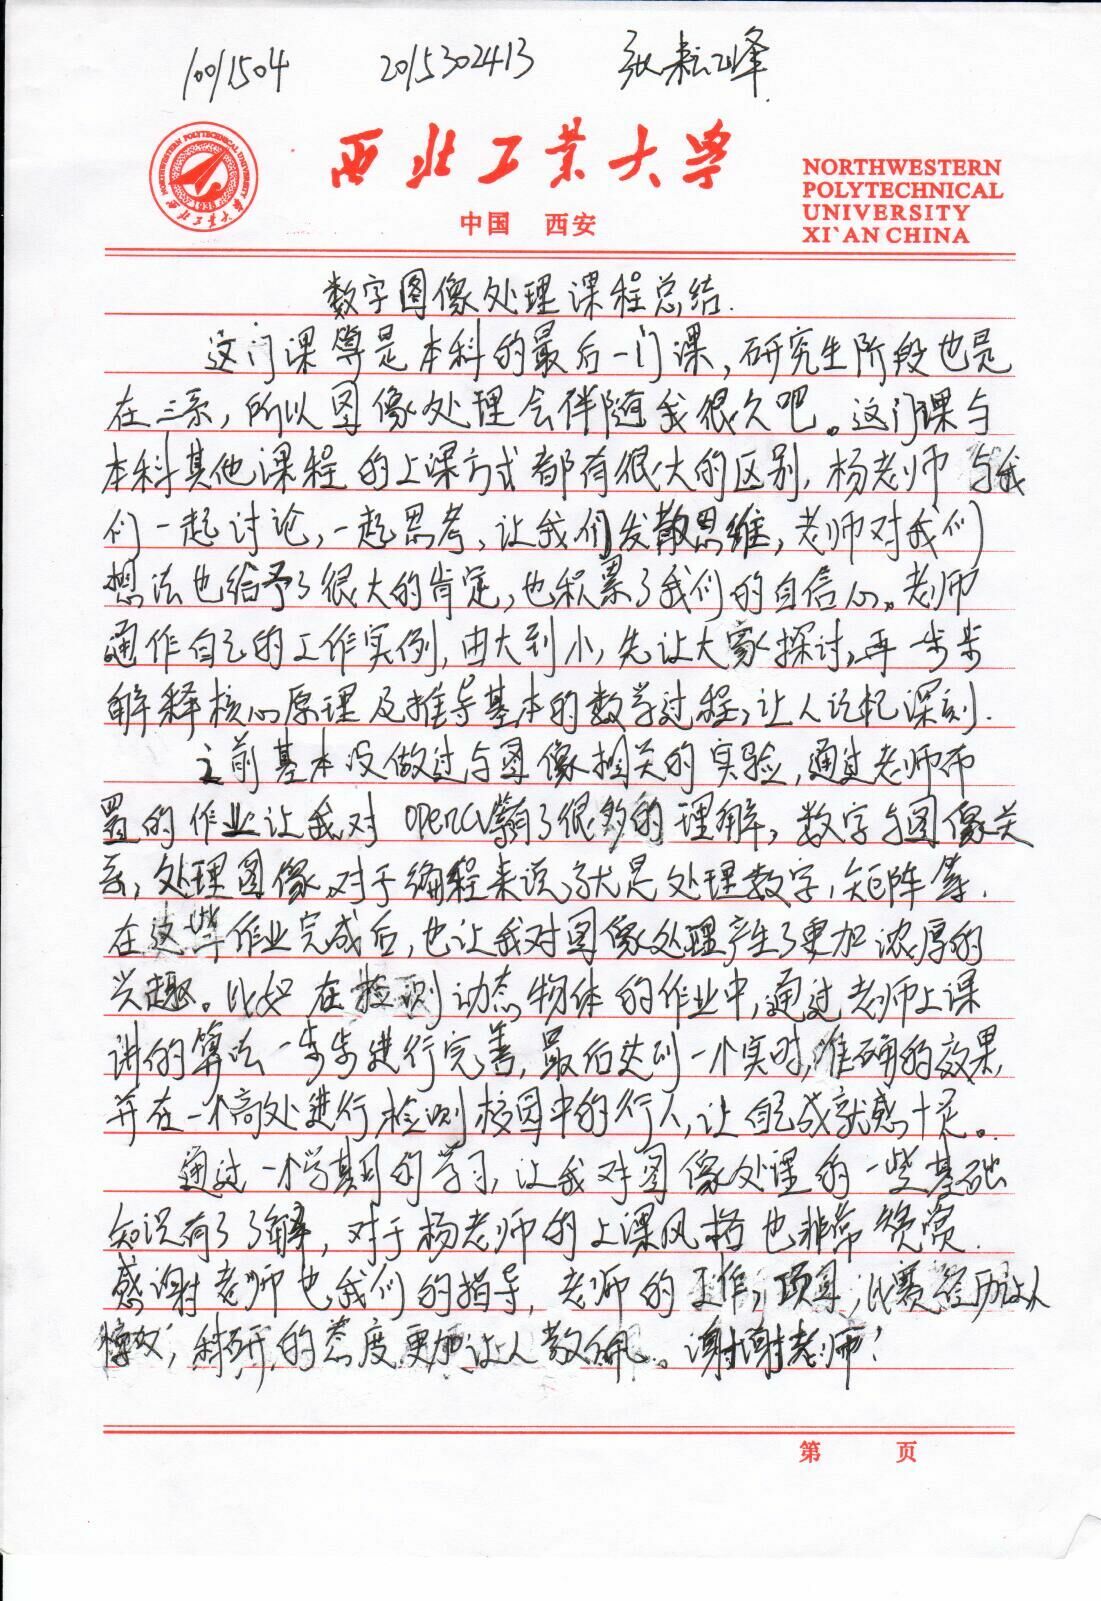 10011504 2015302413 张耘峰
西北工业大学
中国 西安
NORTHWESTERN
POLYTECHNICAL
UNIVERSITY
XI`AN CHINA
NORTHWESTERN POLYTECHNICAL UNIVERSITY
1938
西北工业大学
数字图像处理课程总结.
这门课算是本科的最后一门课,研究生阶段也是
在三系,所以图像处理会伴随我很久吧。这门课与
本科其他课程的上课方式都有很大的区别,杨老师与我
们一起讨论,一起思考,让我们发散思维,老师对我们
想法也给予了很大的肯定,也积累了我们的自信心。老师
通作自己的工作实例,由大到小,先让大家探讨,再一步步
解释核心原理及推导基本的数学过程,让人记忆深刻.
之前基本没做过与图像相关的实验,通过老师布
置的作业让我对opencv有了很多的理解,数字与图像关
系,处理图像对于编程来说就是处理数字,矩阵等.
在这些作业完成后,也让我对图像处理产生了更加浓厚的
兴趣。比如在检测动态物体的作业中,通过老师上课
讲的算法一步步进行完善,最后达到一个实时,准确的效果,
并在一个高处进行检测校园中的行人,让自己成就感十足。
通过一个学期的学习,让我对图像处理的一些基础
知识有了了解,对于杨老师的上课风格也非常赞赏.
感谢老师也我们的指导,老师的工作,项目,比赛经历让人
憧憬,科研的态度更加让人敬佩。谢谢老师!
第 页